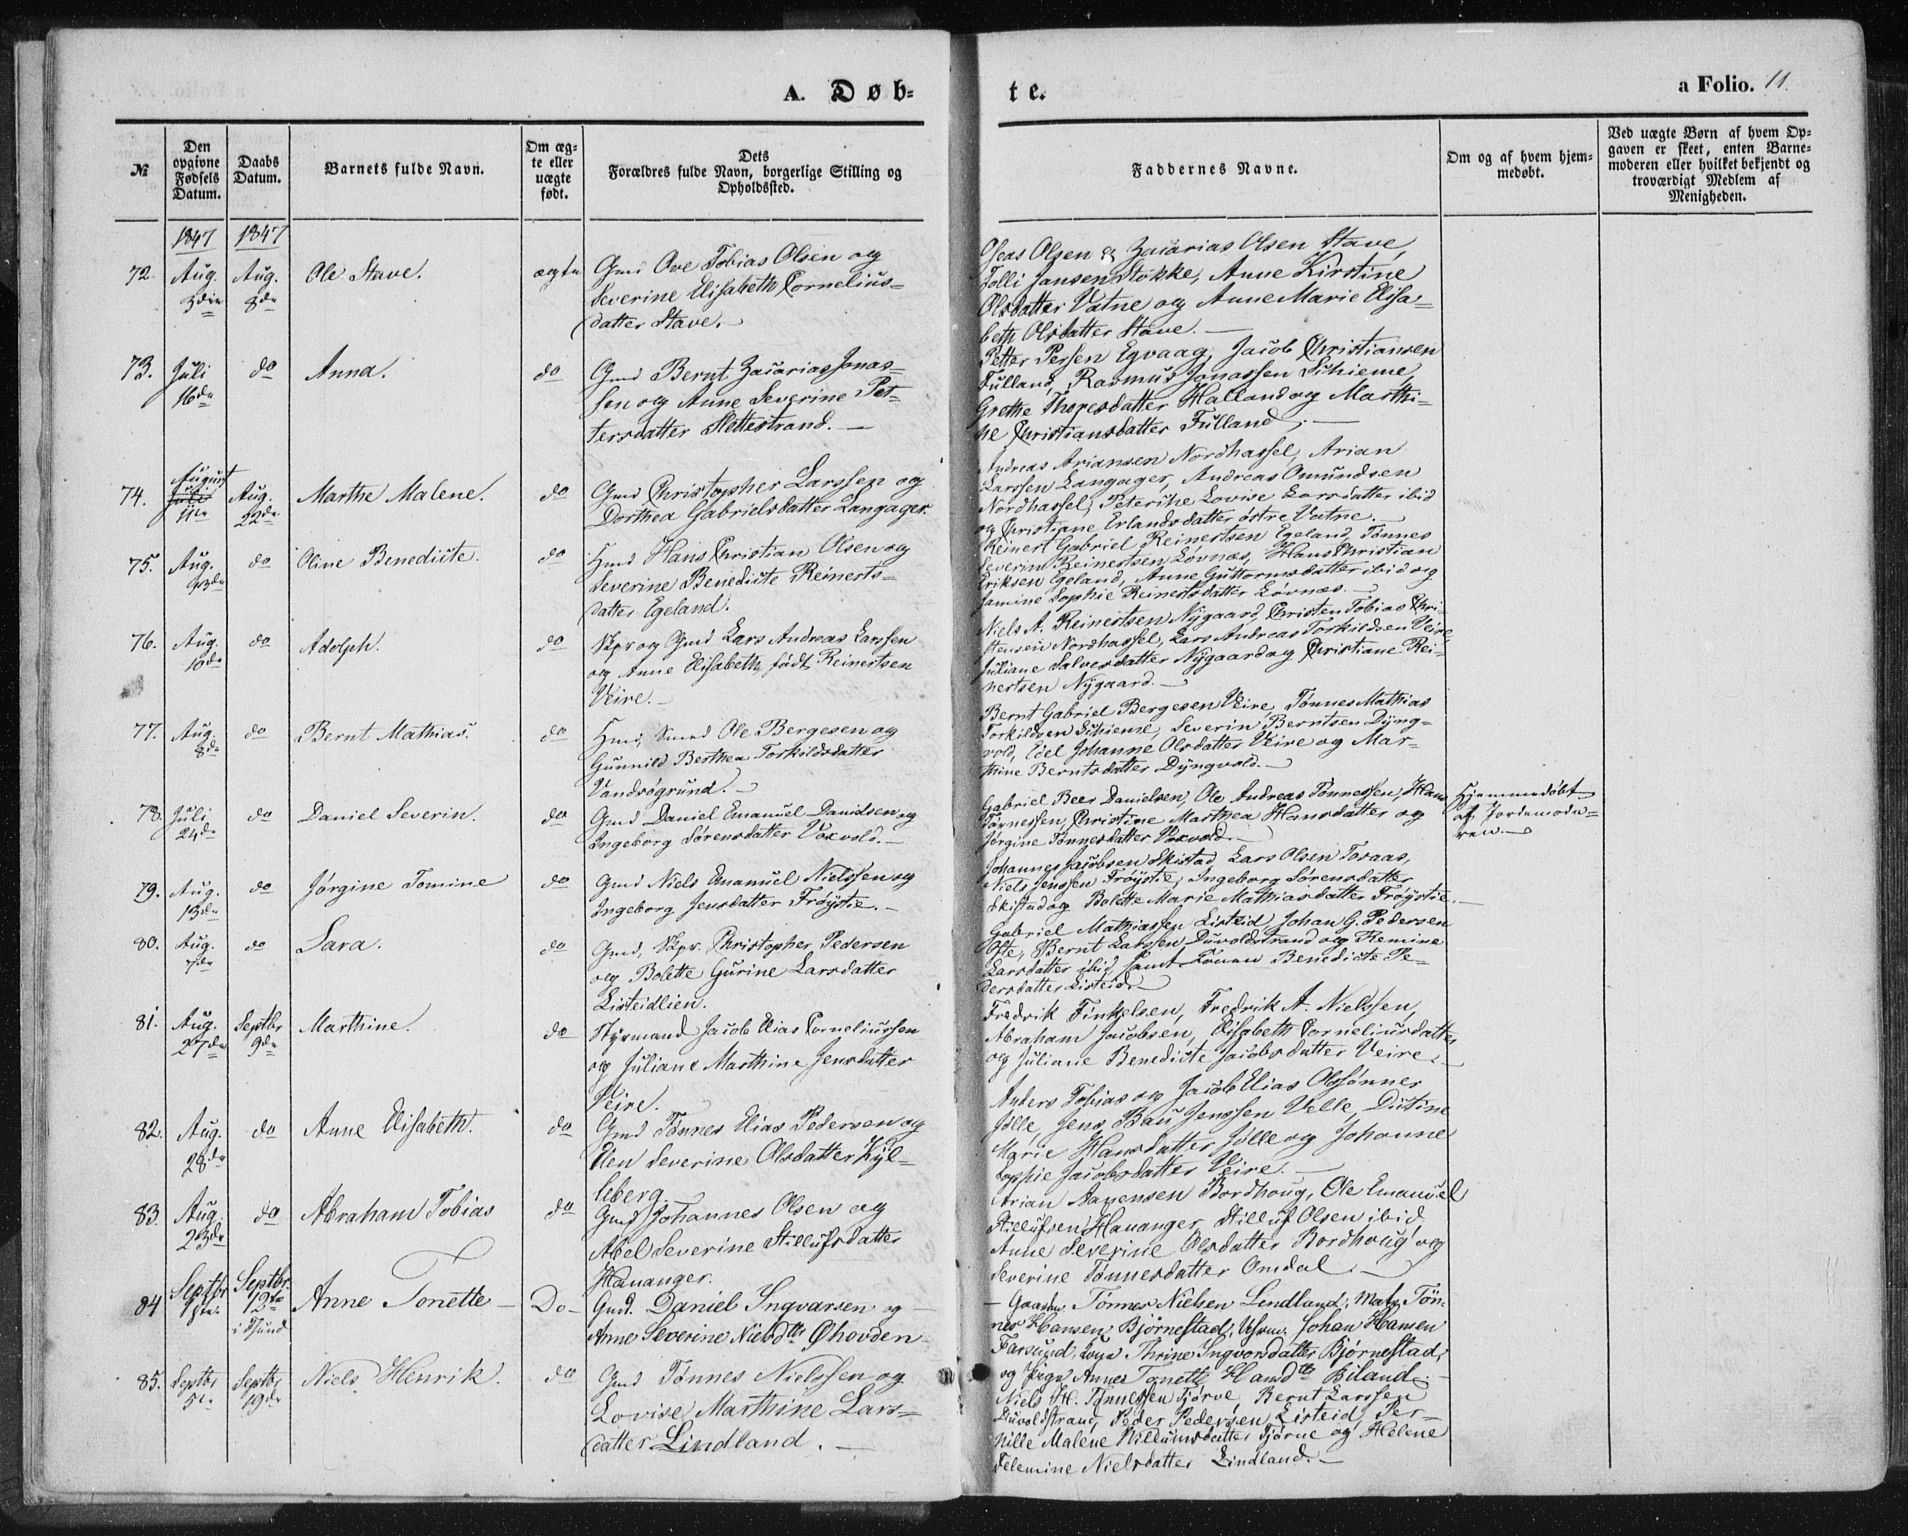 A. Døb-
te.
a Folio. 11.
№
Den opgivne Fødsels Datum.
Daabs Datum.
Barnets fulde Navn.
Om ægte eller uægte født.
Dets Forældres fulde Navn, borgerlige Stilling og Opholdssted.
Faddernes Navne.
Om og af hvem hjemmedøbt.
Ved uægte Børn af hvem Opgaven er skeet, enten Barnemoderen eller hvilket bekjendt og troværdigt Medlem af Menigheden.
1847 1847
72. Aug. Aug. 8de Ole Stave. ægte
Gmd Ove Tobias Olsen og
Severine Elisabeth Cornelius-
datter Stave.
Oseas Olsen & Zacarias Olsen Stave,
Tolli Jansen Stokke, Anne Kirstine
Olsdatter Vatne og Anne Marie Elisa-
beth Olsdatter Stave.
73. Juli 16de do Anna. do
Gmd Bernt Zacarias Jonas-
sen og Anne Severine Pet-
tersdatter Slettestrand.
Petter Persen Egvaag, Jacob Christiansen
Fulland, Rasmus Jonassen Schieme,
Grethe Thoresdatter Halland og Marthi-
ne Christiansdatter Fulland.
74. August 11te Aug. 22de Marthe Malene. do
Gmd Christopher Larssen og
Dorthea Gabrielsdatter Langager.
Andreas Ariansen Nordhassel, Arian
Larssen Langager, Andreas Omundsen
Nordhassel, Peterine Lovise Larsdatter ibid
og Christiane Erlandsdatter østre Vatne.
75. Aug. do Oline Benedicte. do
Hmd Hans Christian Olsen og
Severine Benedicte Reinerts-
datter Egeland.
Reinert Gabriel Reinertsen Egeland, Tønnes
Severin Reinertsen Løvnæs, Hans Christian
Eriksen Egeland, Anne Guttormsdatter ibid og
Samine Sophie Reinertsdatter Løvnæs.
76. Aug. 10de do Adolph. do
Skpr og Gmd Lars Andreas Larssen
og Anne Elisabeth født Reinertsen
Veire.
Niels A. Reinertsen Nygaard, Christen Tobias Chri-
stensen Nordhassel, Lars Andreas Torkildsen Veire,
Juliane Salvesdatter Nygaard og Christiane Rei-
nertsen Nygaard.
77. Aug. 8de do Bernt Mathias. do
Hmd, Smed Ole Bergesen og
Gunnild Berthea Torkildsdatter
Vandsøgrund.
Bernt Gabriel Bergesen Veire, Tønnes Mathias
Torkildsen Schieme, Severin Berntsen Dyng-
vold, Edel Johanne Olsdatter Veire og Mar-
thine Berntsdatter Dyngvold.
78. Juli 24de do Daniel Severin. do
Gmd Daniel Emanuel Danielsen og
Ingeborg Sørensdatter Voxvold.
Gabriel Beer Danielsen, Ole Andreas Tønnessen, Hans
Tønnessen, Christine Marthea Hansdatter og
Jørgine Tønnesdatter Voxvold.
Hjemmedøbt
af Jordemode-
ren.
79. Aug. 13de do Jørgine Tomine do
Gmd Niels Emanuel Nielssen og
Ingeborg Jensdatter Frøystie.
Johannes Jacobsen Skistad, Lars Olsen Toraas,
Niels Jenssen Frøystie, Ingeborg Sørensdatter
Skistad og Bolette Marie Mathiasdatter Frøystie.
80. Aug. do Sara. do
Gmd, Skpr. Christopher Pedersen
og Bolette Gurine Larsdatter
Listeidlien.
Gabriel Mathiassen Listeid, Johan G. Pedersen
Ofte, Bernt Larssen Duvoldstrand og Remine
Larsdatter ibid samt Benedicte Pe-
dersdatter Listeid.
81. Aug. 27de Septbr 9de Marthine. do
Styrmand Jacob Elias Corneliussen
og Juliane Marthine Jensdatter
Veire.
Fredrik Finkelsen, Fredrik A. Nielssen,
Abraham Jacobsen, Elisabeth Corneliusdatter
og Juliane Benedicte Jacobsdatter Veire.
82. Aug. 28de do Anne Elisabeth. do
Gmd Tønnes Elias Pedersen og
Elen Severine Olsdatter Kyl-
leberg.
Anders Tobias og Jacob Elias Olssønner
Jølle, Jens Bau Jenssen Velle,
Marie Hansdatter Jølle og Johanne
Sophie Jacobsdatter Veire.
83. Aug. 23de do Abraham Tobias do
Gmd Johannes Olsen og
Abel Severine Stillufsdatter
Hananger.
Arian Aanensen Bordhoug, Ole Emanuel
Stillufsen Hananger, Stilluf Olsen ibid
Anne Severine Olsdatter Bordhoug og
Severine Tønnesdatter Omdal.
84 Septbr 1ste Septbr 12te i Sund Anne Tonette Do
Gmd. Daniel Ingvarsen og
Anne Severine Nielsdtr Øhovden
Tønnes Nielsen Lindland, Tøn-
nes Hansen Bjørnestad, Johan Hansen
Farsund, Thrine Ingvorsdatter Bjørnestad,
og Pige Anne Tonette Hansdtr Biland.
85. Septbr 5te Septbr 19de Niels Henrik. do
Gmd Tønnes Nielssen og
Lovise Marthine Lars-
datter Lindland.
Niels H. Tønnessen Tjørve, Bernt Larssen
Duvoldstrand, Peder Pedersen Listeid, Per-
nille Malene Willumsdatter Tjørve og Helene
Telemine Nielsdatter Lindland.